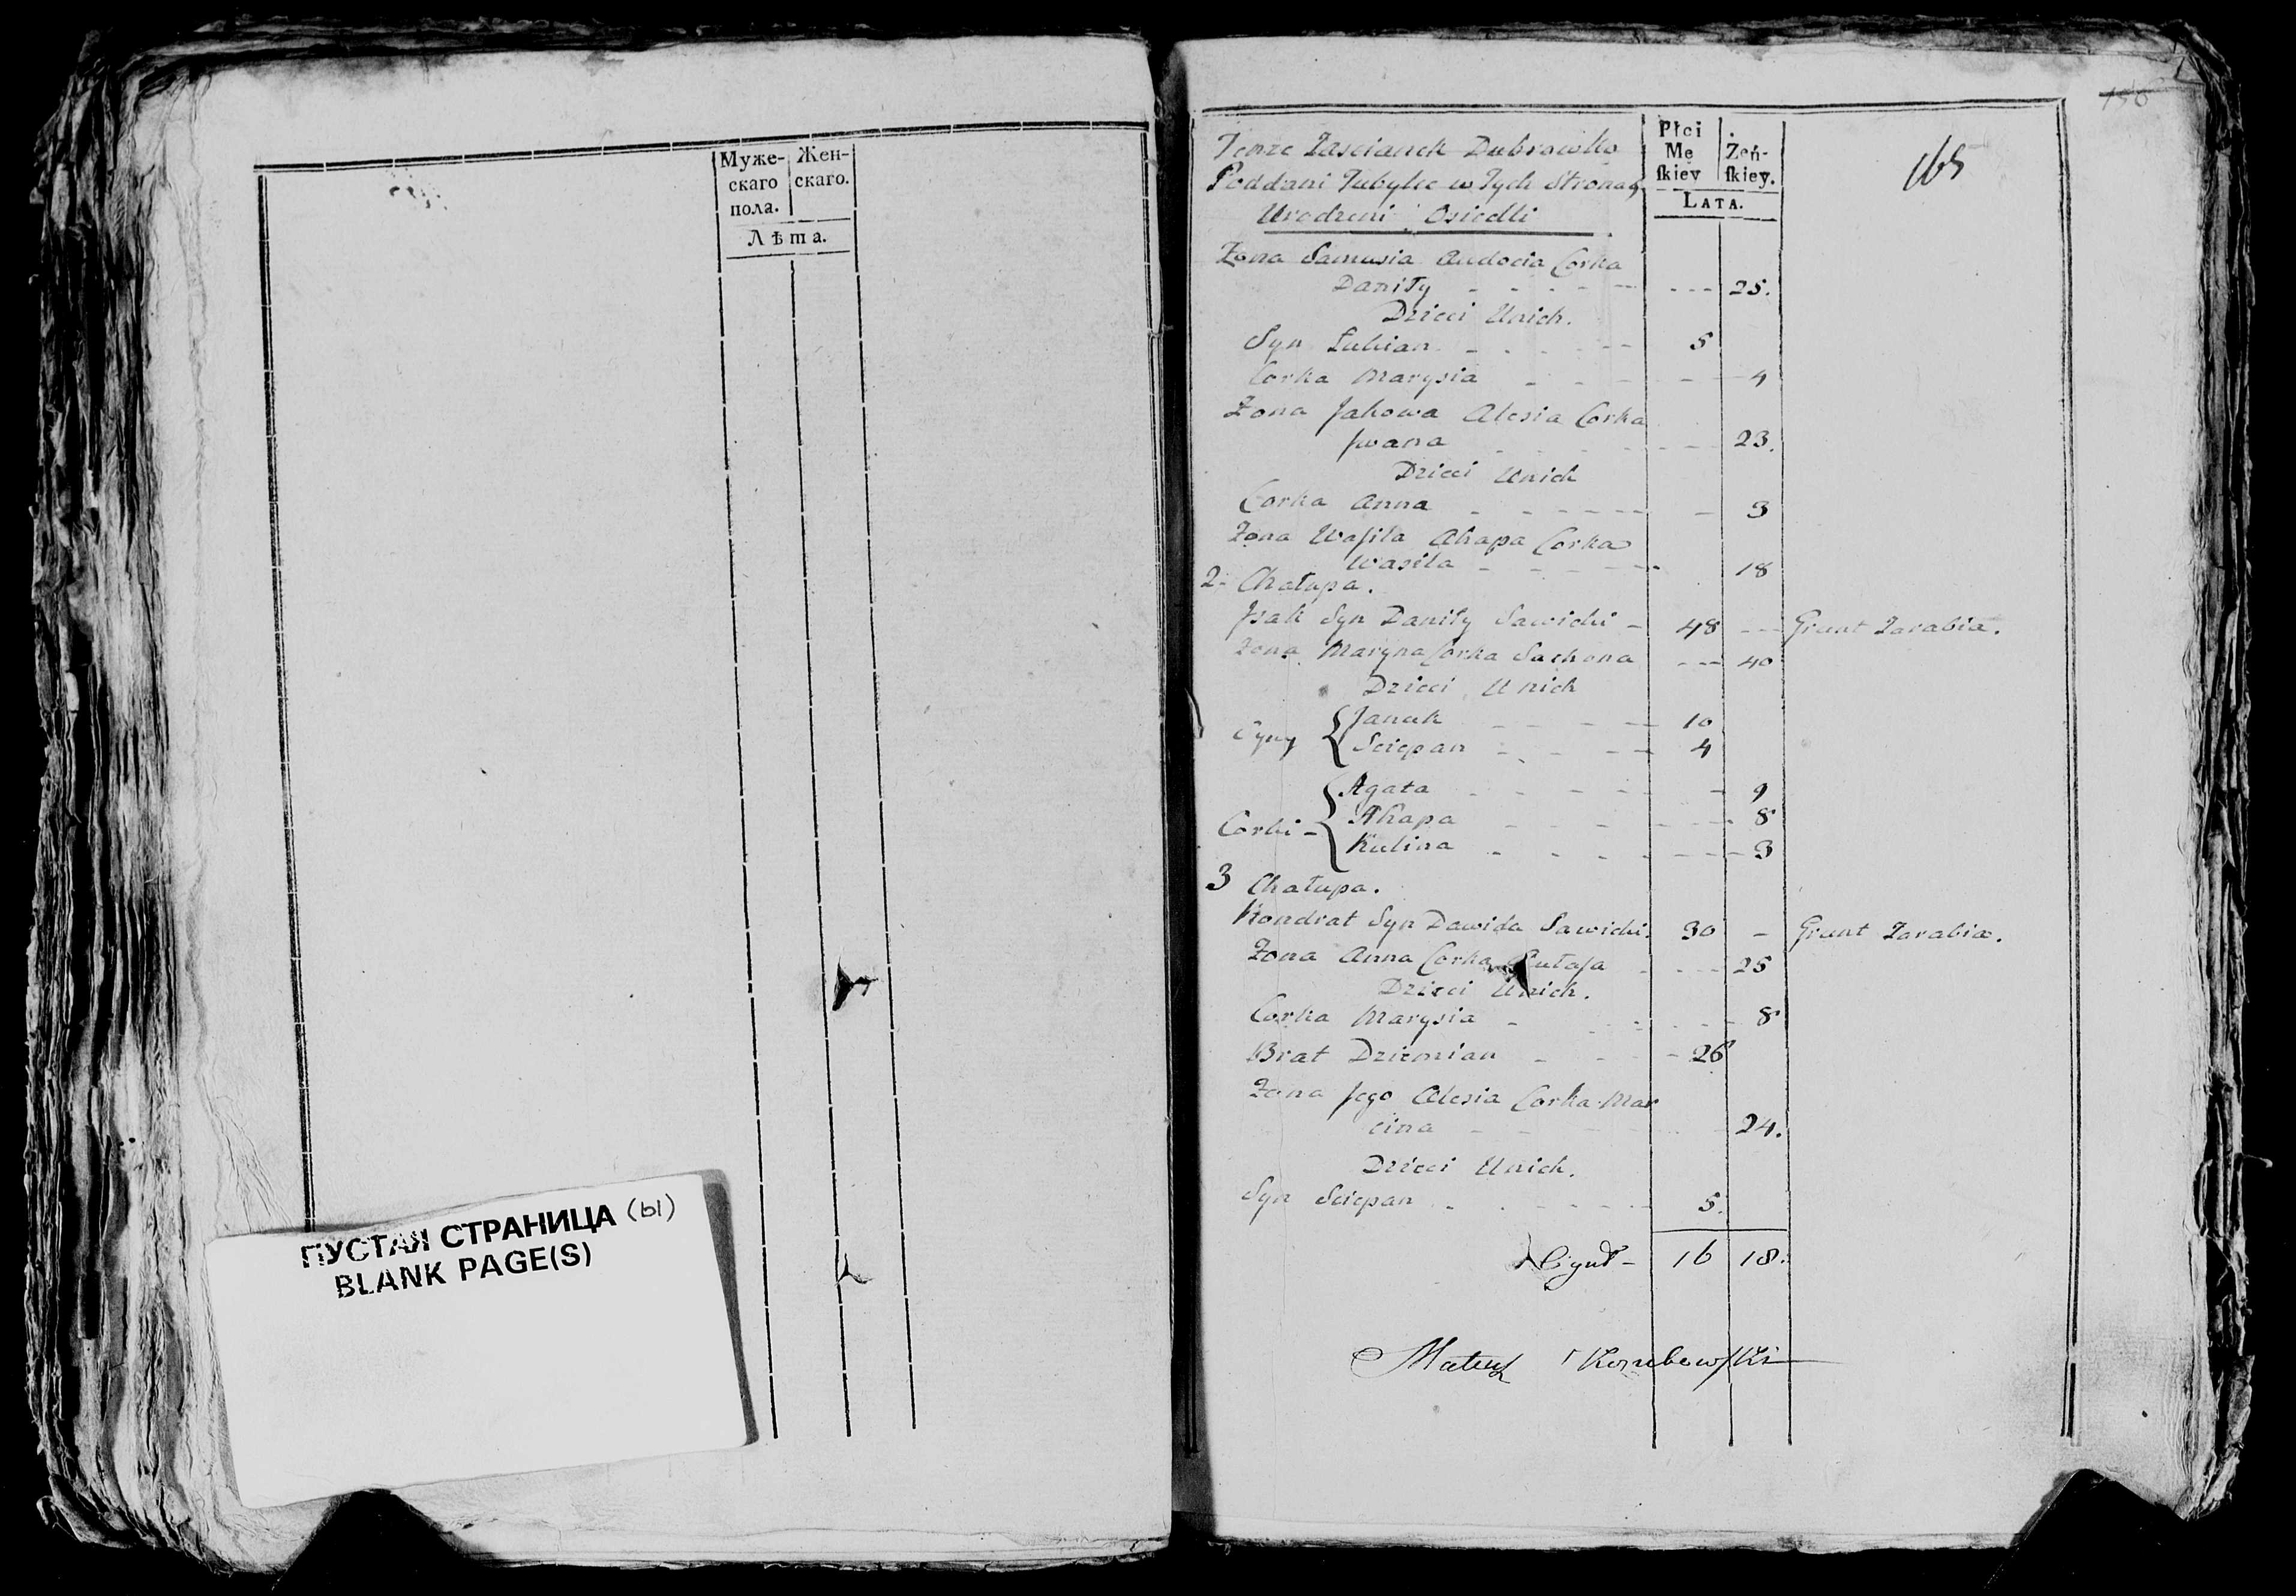 Муже-
скаго
пола.
Жен-
скаго.
Лѣта.
ПУСТАЯ СТРАНИЦА (ы)
BLANK PAGE(S)
156
165
Tenze Zascianek Dubrowka
Poddani Tubylce w Tych Stronach
Urodzeni Osiedli
Płci
Mę
skiey
Żeń-
skiey.
LATA.
Zona Samusia Audocia Corka
Daniły - - - - - 25.
Dzieci Unich.
Syn Łukian - - - - 5
Corka Marysia - - - - 4
Zona Jakowa Alesia Corka
Jwana - - - 23.
Dzieci Unich
Corka Anna - - - - - 3
Zona Wasila Ahapa Corka
Wasila - - - - - 18
2. Chałupa.
Jsak Syn Daniły Sawicki - 48 - - Grunt Zarabia.
Zona Maryna Corka Sachona - - - 40
Dzieci Unich
Syny
Januk - - - - - 10
Sciepan - - - - 4
Corki -
Agata - - - - - 9
Ahapa - - - - - 8
Kulina - - - - - 3
3 Chałupa.
Kondrat Syn Dawida Sawicki. 30 - Grunt Zarabia.
Zona Anna Corka - - - 25
Dzieci Unich.
Corka Marysia - - - - 8
Brat Dziemian - - - 26
Zona Jego Alesia Corka Mar
cina - - - 24.
Dzieci Unich.
Syn Sciepan - - - - - 5.
16 18.
Mateusz